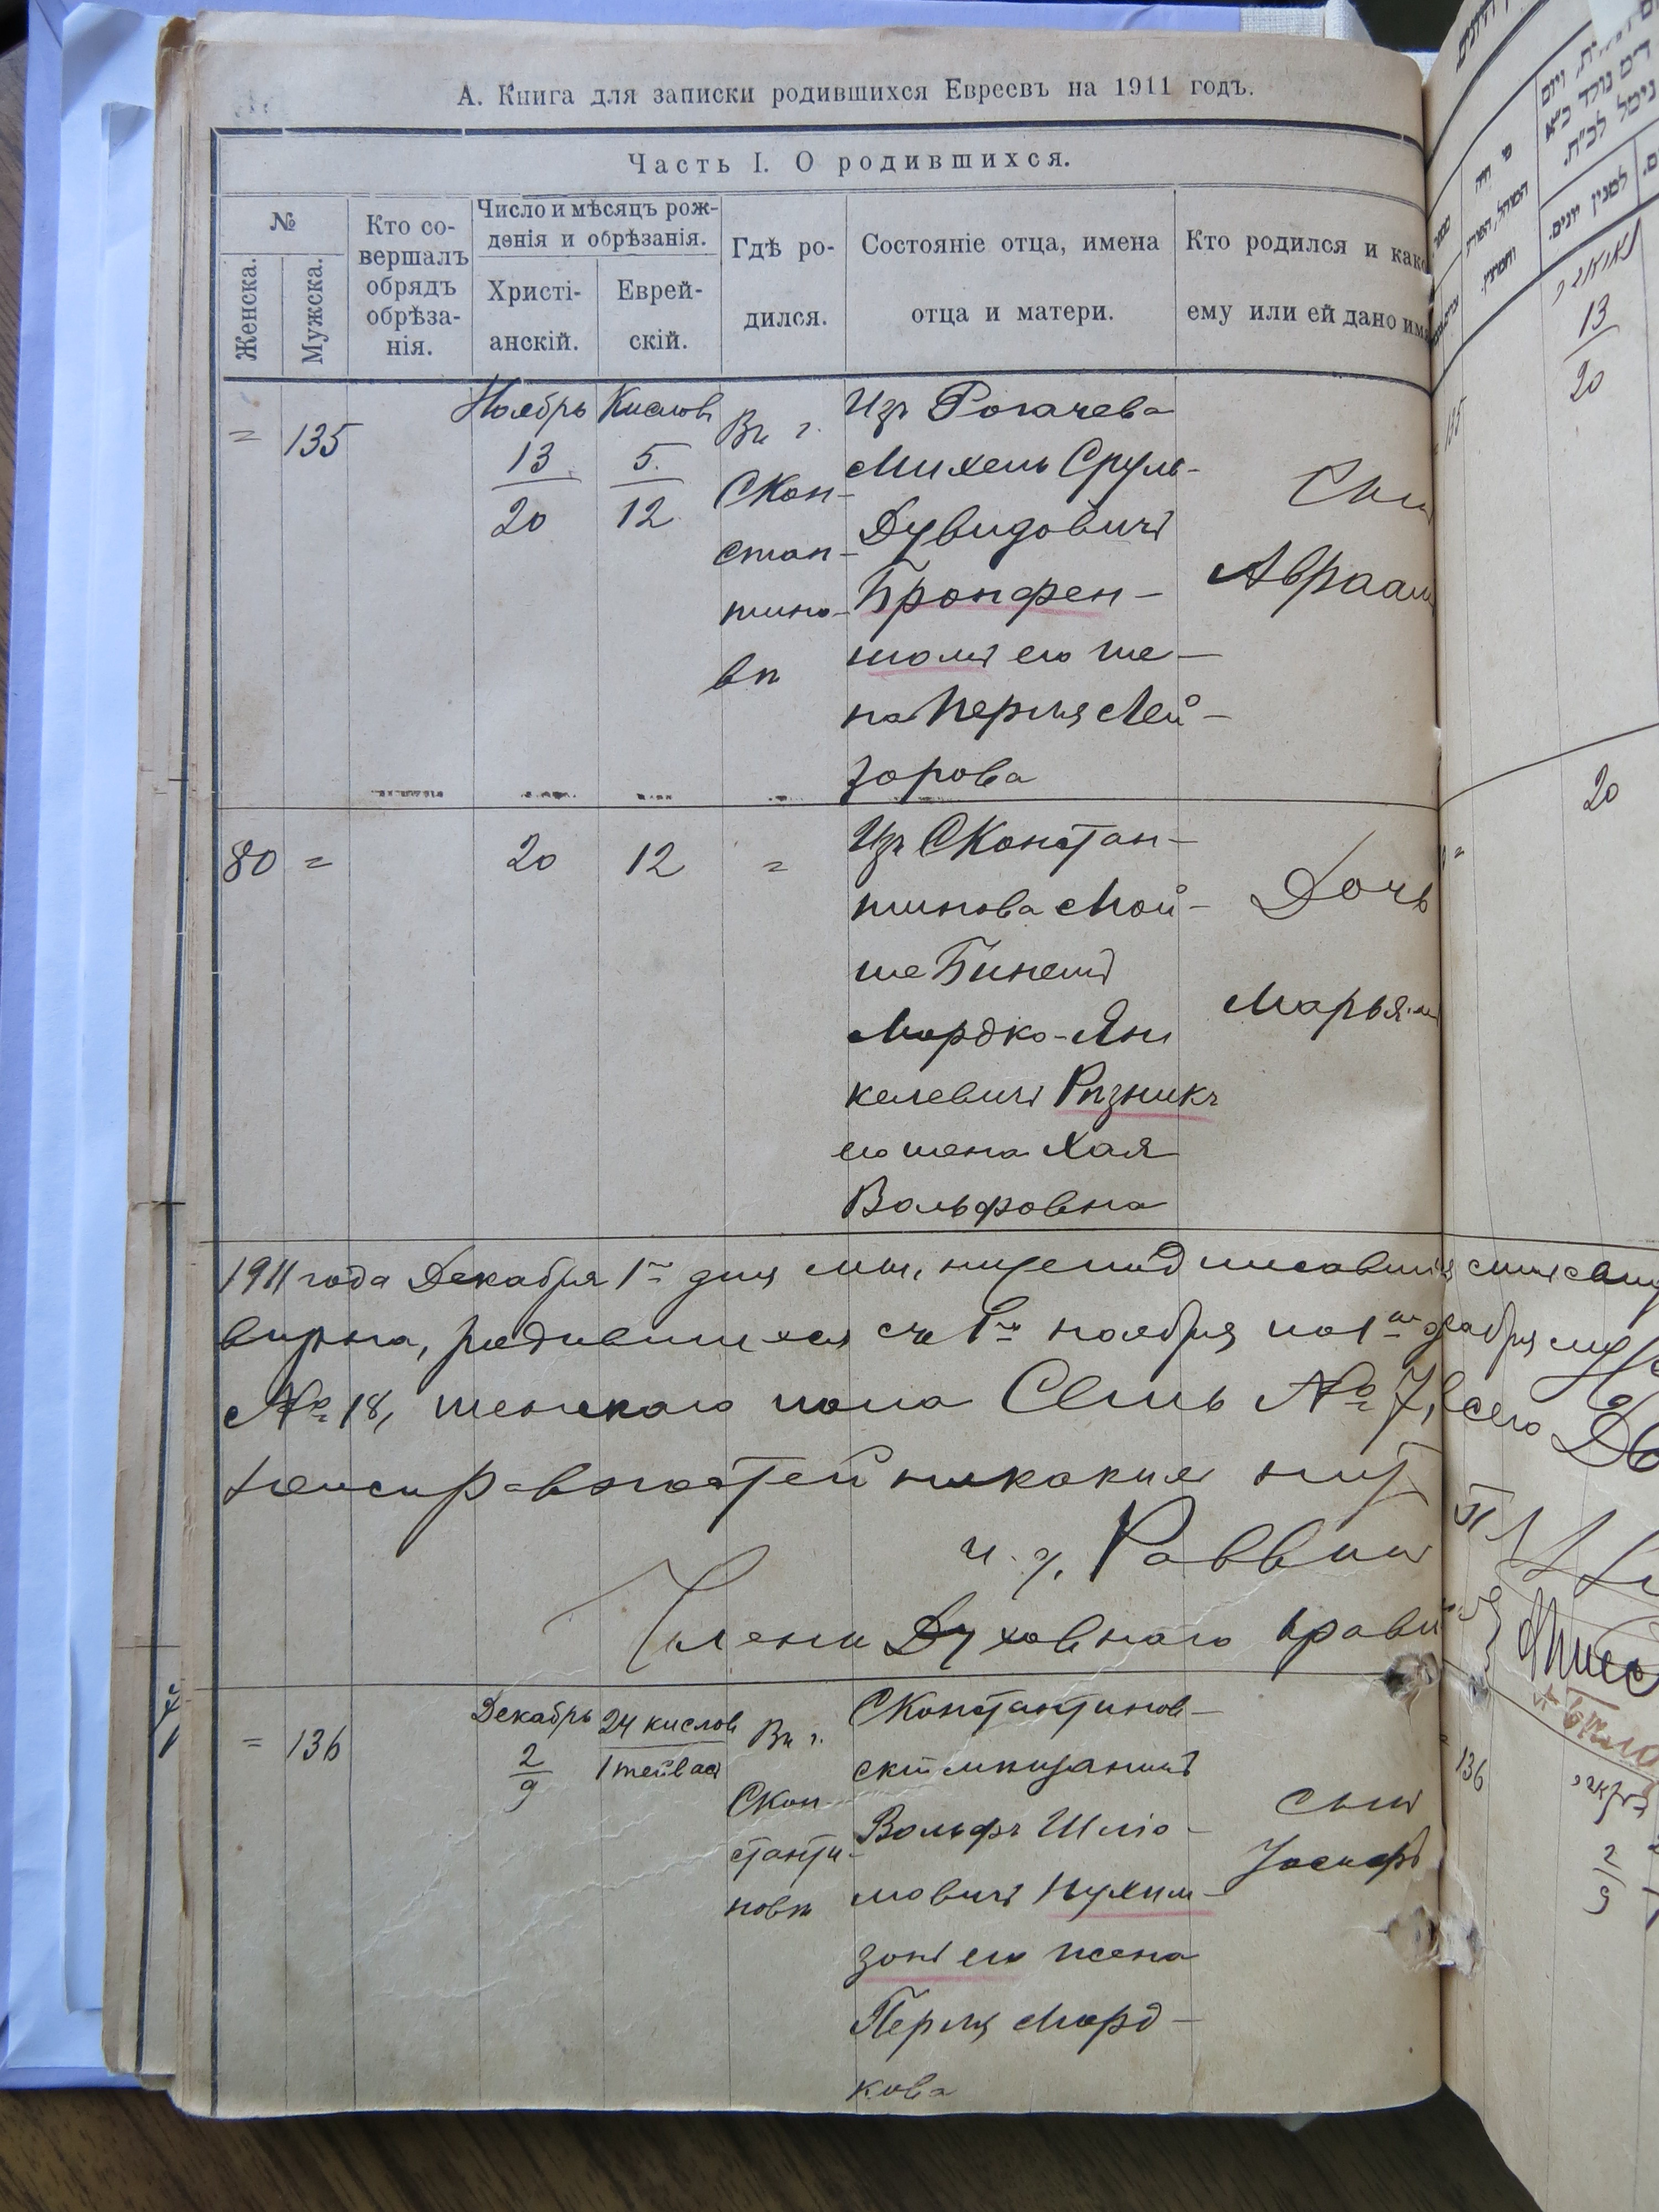 А. Книга для записки родившихся Евреевъ на 1911 годъ.
Часть I. О родившихся.
№
Женска.
Мужска.
Кто со-
вершалъ
обрядъ
обрѣза-
нія.
Число и мѣсяцъ рож-
денія и обрѣзанія.
Христі-
анскій.
Еврей-
скій.
Гдѣ ро-
дился.
Состояніе отца, имена
отца и матери.
Кто родился и како
ему или ей дано имя
=
135
Ноябрь
13
20
Кислов
5
12
Въ г.
СКон-
стан-
тино-
вѣ
Изъ Рогачева
Михель Сруль-
Дувидовичъ
Бронфен-
толъ его же-
на Перля Лей-
зорова
Сынъ
Авраамъ
80
=
20
12
=
Изъ СКонстан-
тинова Мой-
ше Бинемъ
Мордко-Ян
келевичъ Рѣзникъ
его жена Хая
Вольфовна
Дочь
Марьям
1911 года Декабря 1го дня мы, нижеподписавшіеся
вѣрна, родившихся съ 1го ноября по 1ое декабря
№ 18, женскаго пола Семь № 7, всего
неисправностей никакихъ нѣтъ
и. д. Раввинъ
Члены Духовнаго Правл
=
136
Декабрь
2
9
24 кислов
1 тейвас
Въ г.
СКон-
станти-
новѣ
СКонстантинов-
скій мѣщанинъ
Вольфъ Шліо-
мовичъ Нухим-
зонъ его жена
Перля Морд-
кова
сынъ
Іосифъ
13
20
20
136
2
9